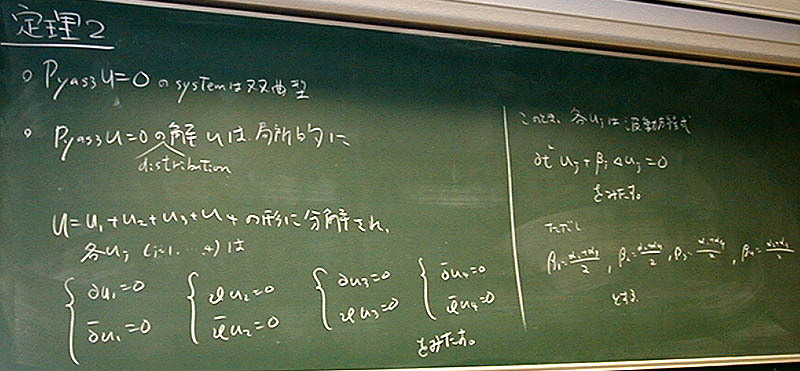 定理2
○ Pyas3 u=0 の system は 双曲型
○ Pyas3 u=0 の解 u は 局所的に
distribution
u=u₁+u₂+u₃+u₄ の形に分解され、
各 uⱼ (j=1,…,4) は
{ ∂u₁=0 { 𝒟u₂=0 { ∂u₃=0 { ∂̄u₄=0
∂̄u₁=0 𝒟̄u₂=0 𝒟u₃=0 𝒟̄u₄=0
をみたす。
このとき、各 uⱼ は 波動方程式
∂t² uⱼ + βⱼ Δuⱼ = 0
をみたす。
ただし
とする